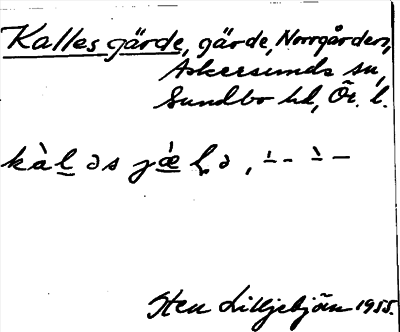 Kalles gärde, gärde, Norrgården,
Askersunds sn,
Sundbo hd, Ör. l.
kàl̲əs
Sten Lilljebjän 1955.